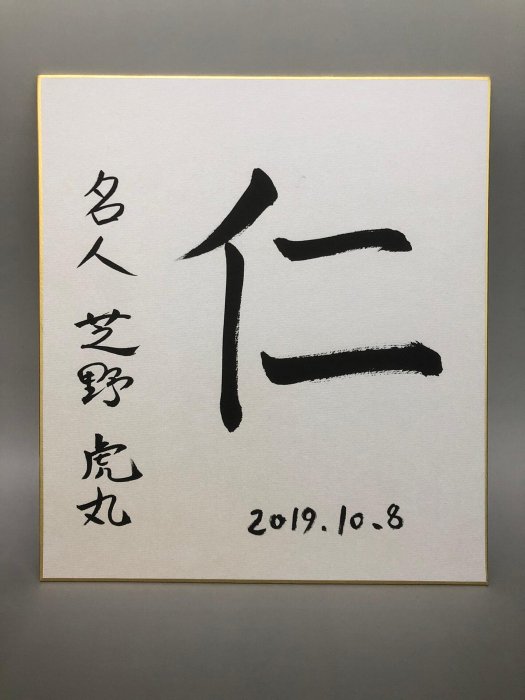 仁
名人 芝野 虎丸
2019.10.8